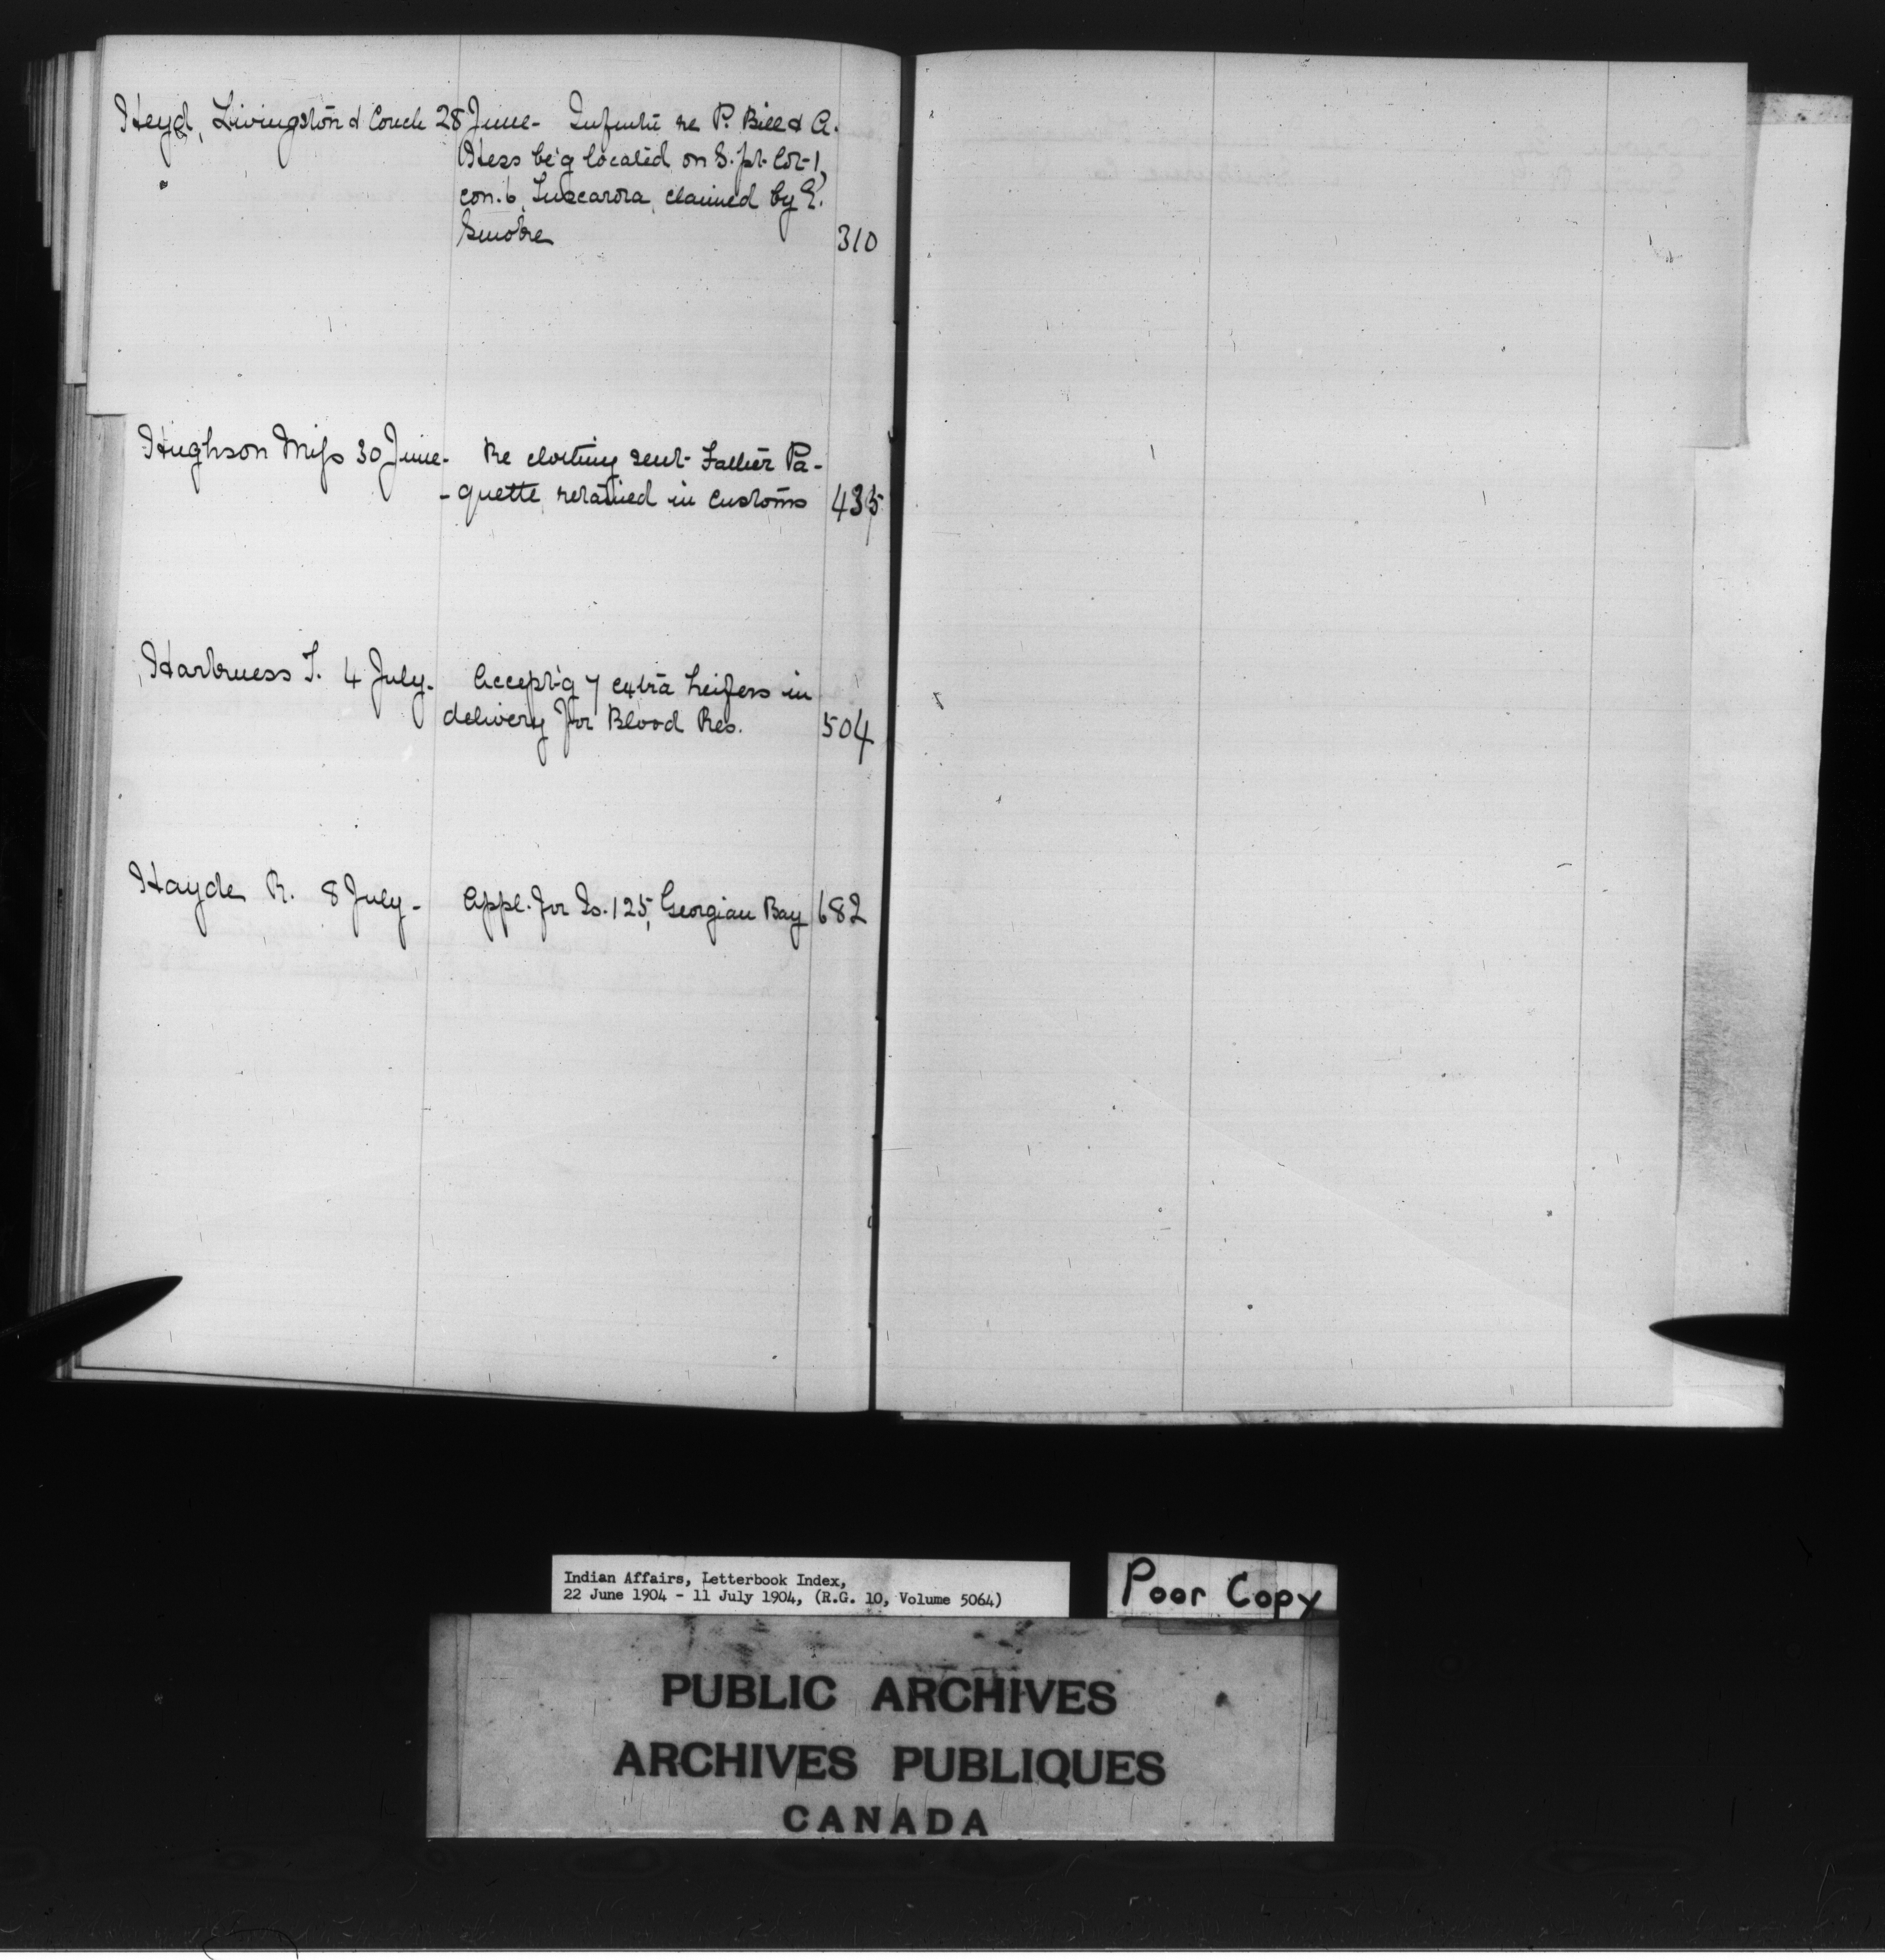 Heyd, Livingston & Couch 28 June - Infm'tn re P. Bill & A.
Hess be'g located on S. pt. lot 1,
con. 6, Tuscarora, claimed by E.
Smoke 310
Hughson Miss 30 June - Re clothing sent Father Pa-
-quette retained in customs 435
Harkness T. 4 July - Accept'g 7 extra heifers in
delivery for Blood Res. 504
Hayde R. 8 July - Appl. for Is. 125, Georgian Bay 682
Indian Affairs, Letterbook Index,
22 June 1904 - 11 July 1904, (R.G. 10, Volume 5064)
Poor Copy
PUBLIC ARCHIVES
ARCHIVES PUBLIQUES
CANADA